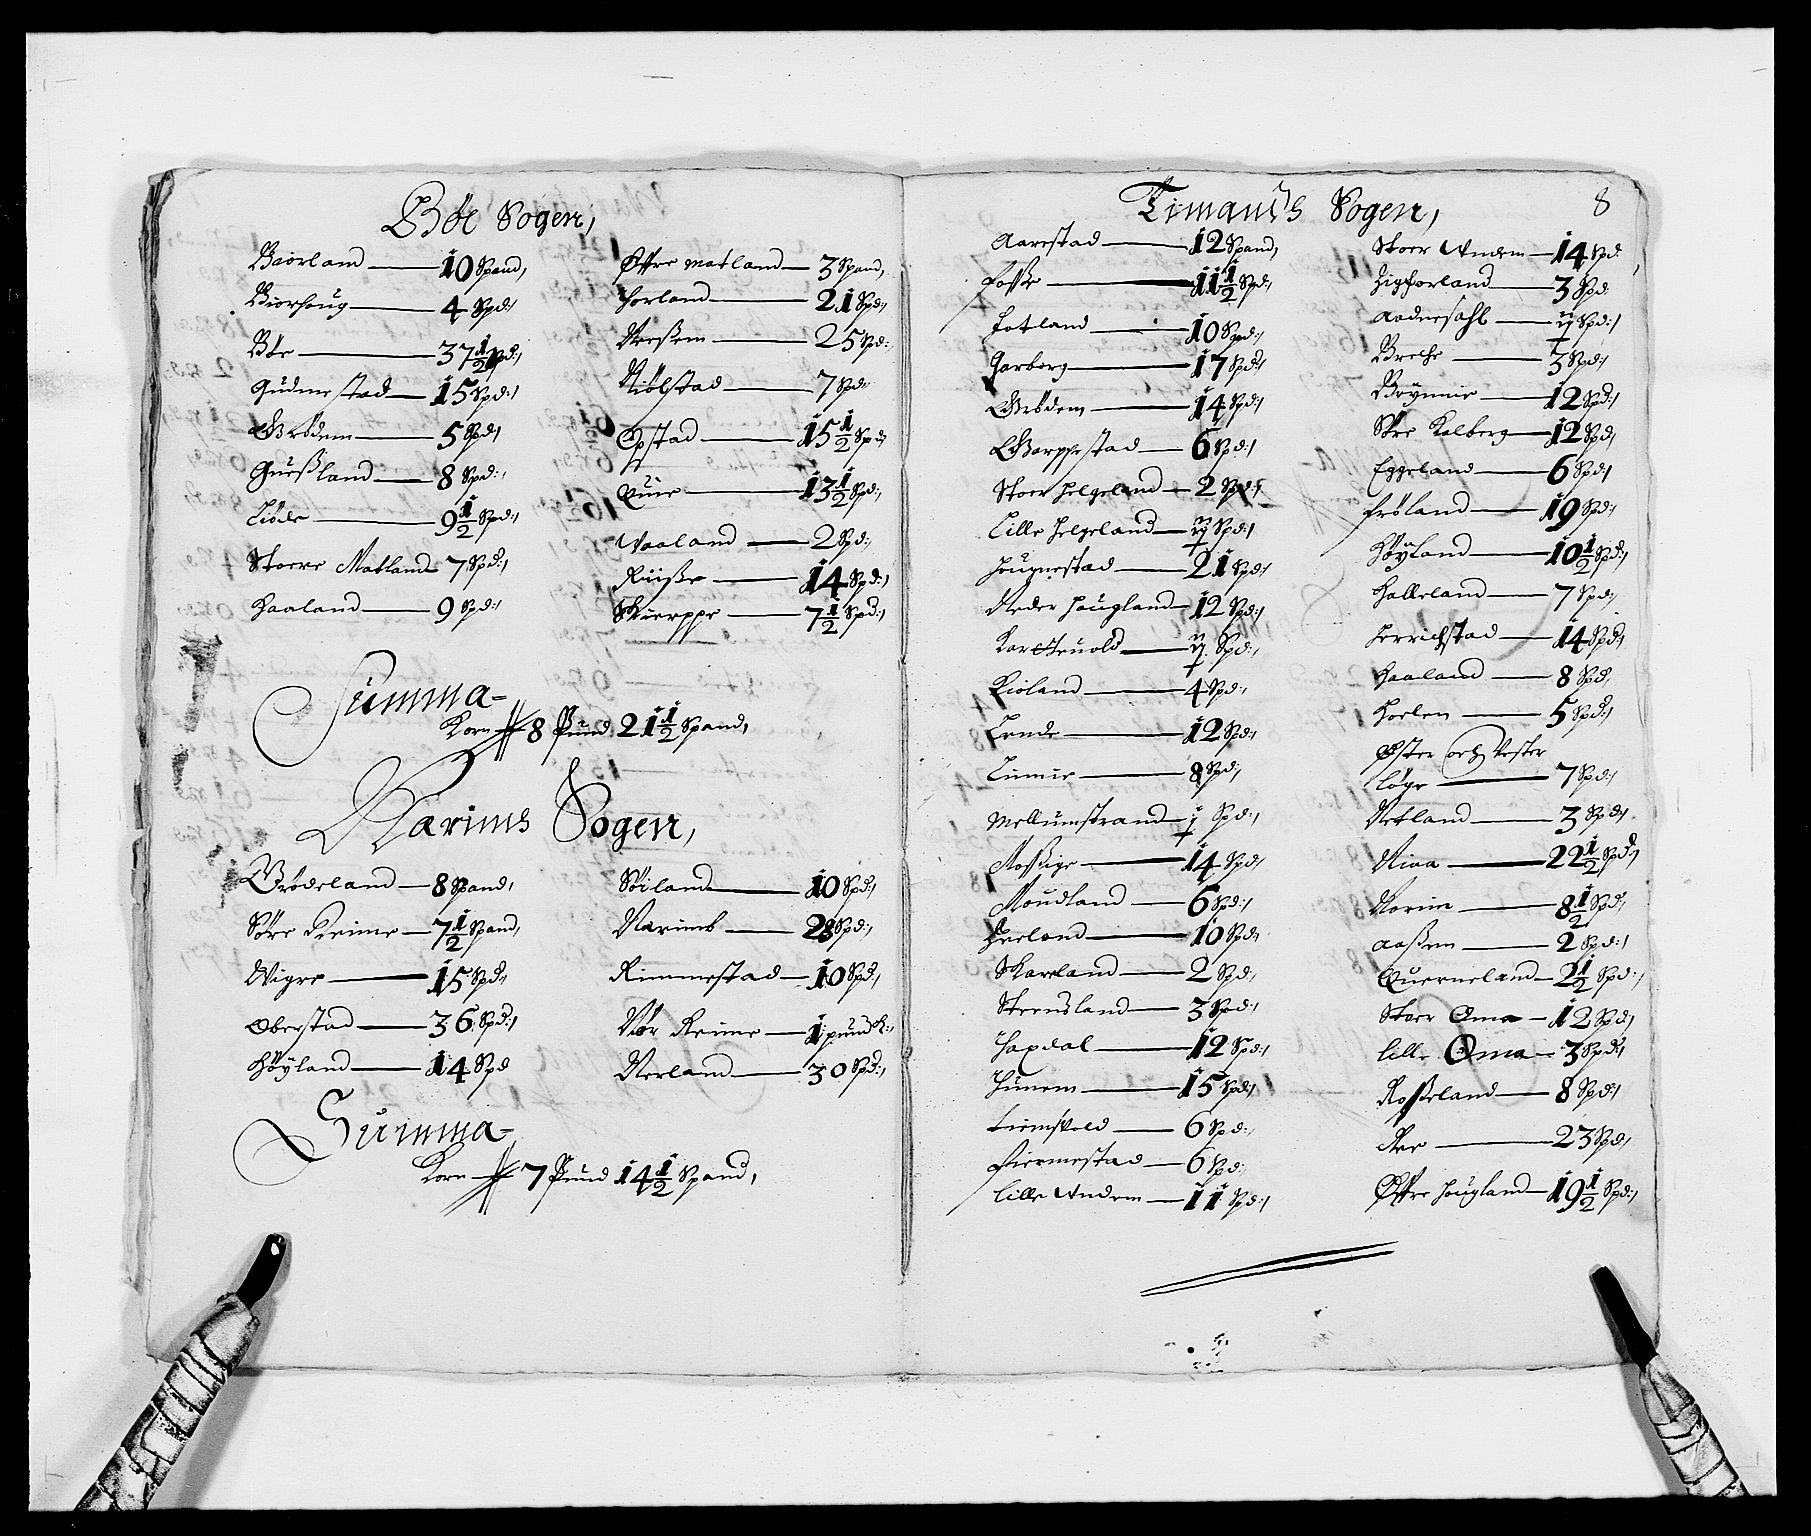 Bøe Sogen,
Baorland 10 Spand,
Biorhoug 4 Spd:,
Bøe 37 1/2 Spd:,
Gudmestad 15 Spd:,
Grødem 5 Spd,
Guesland 8 Spd:,
Liøde 9 1/2 Spd:,
Stoere Matland 7 Spd:,
Haaland 9 Spd:,
Øffre Matland 3 Spand,
Horland 21 Spd:,
Nerßem 25 Spd:
Niølstad 7 Spd:
Opstad 15 1/2 Spd,
Quie 13 1/2 Spd:,
Waaland 2 Spd:,
Riiße 14 Spd:,
Skierppe 7 1/2 Spd:,
Summa
Korn 8 Pund 21 1/2 Spand,
Narims Sogen,
Brødeland 8 Spand,
Søre Reime 7 1/2 Spand,
Wigre 15 Spd,
Oberstad 36 Spd:,
Høyland 14 Spd
Søiland 10 Spd:,
Narimb 28 Spd:,
Rimmestad 10 Spd,
Nør Reime 1 pund K:,
Nerland 30 Spd:,
Summa
Korn 7 Pund 14 1/2 Spand,
8
Timands Sogen,
Aarestad 12 Spand,
Foske 11 1/2 Spd:,
Fotland 10 Spd:,
Garborg 17 Spd:,
Grødem 14 Spd:,
Garppestad 6 Spd:,
Stoer Helgeland 2 Spd:,
Lille Helgeland Spd:,
Hougnestad 21 Spd:,
Neder Hougland 12 Spd:,
Spd:,
Kioland 4 Spd:,
Lende 12 Spd:,
Limie 8 Spd,
Mellumstrand Spd:,
Moßige 14 Spd,
Moudland 6 Spd:,
10 Spd,
Skareland 2 Spd,
Steensland 3 Spd:,
Haxdal 12 Spd:,
Hunem 15 Spd:,
6 Spd:,
Fiermestad 6 Spd:
Lille Undem 11 Spd:,
Stoer Undem 14 Spd
3 Spd:
Aadnesahl Spd:,
Brehe 3 Spd:,
Brynnie 12 Spd:,
Søre Kalberg 12 Spd,
Eggeland 6 Spd,
Frøland 19 Spd:,
Høyland 10 1/2 Spd:,
Halleland 7 Spd:,
Herrichstad 14 Spd,
Haaland 8 Spd,
Hoelen 5 Spd:,
Øster och Vester
Løge 7 Spd:,
Netland 3 Spd:,
Niaa 22 1/2 Spd:,
Norim 8 1/2 Spd,
Aaßem 2 Spd:,
Querneland 2 1/2 Spd:,
Stoer Oma 12 Spd,
Lille Oma 3 Spd:,
Roßeland 8 Spd:,
Ree 23 Spd,
Øffre Hougland 19 1/2 Spd:,